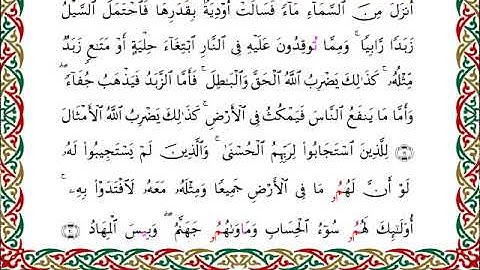 أَنزَلَ مِنَ ٱلسَّمَآءِ مَآءً فَسَالَتْ أَوْدِيَةٌۢ بِقَدَرِهَا فَٱحْتَمَلَ ٱلسَّيْلُ
زَبَدًا رَّابِيًا ۚ وَمِمَّا تُوقِدُونَ عَلَيْهِ فِى ٱلنَّارِ ٱبْتِغَآءَ حِلْيَةٍ أَوْ مَتَٰعٍ زَبَدٌ
مِّثْلُهُۥ ۚ كَذَٰلِكَ يَضْرِبُ ٱللَّهُ ٱلْحَقَّ وَٱلْبَٰطِلَ ۚ فَأَمَّا ٱلزَّبَدُ فَيَذْهَبُ جُفَآءً ۖ
وَأَمَّا مَا يَنفَعُ ٱلنَّاسَ فَيَمْكُثُ فِى ٱلْأَرْضِ ۚ كَذَٰلِكَ يَضْرِبُ ٱللَّهُ ٱلْأَمْثَالَ
لِلَّذِينَ ٱسْتَجَابُوا۟ لِرَبِّهِمُ ٱلْحُسْنَىٰ ۚ وَٱلَّذِينَ لَمْ يَسْتَجِيبُوا۟ لَهُۥ
لَوْ أَنَّ لَهُمُۥ مَا فِى ٱلْأَرْضِ جَمِيعًا وَمِثْلَهُۥ مَعَهُۥ لَٱفْتَدَوْا۟ بِهِۦٓ ۚ
أُو۟لَٰٓئِكَ لَهُمُۥ سُوٓءُ ٱلْحِسَابِ وَمَأْوَىٰهُمُۥ جَهَنَّمُ ۖ وَبِيسَ ٱلْمِهَادُ